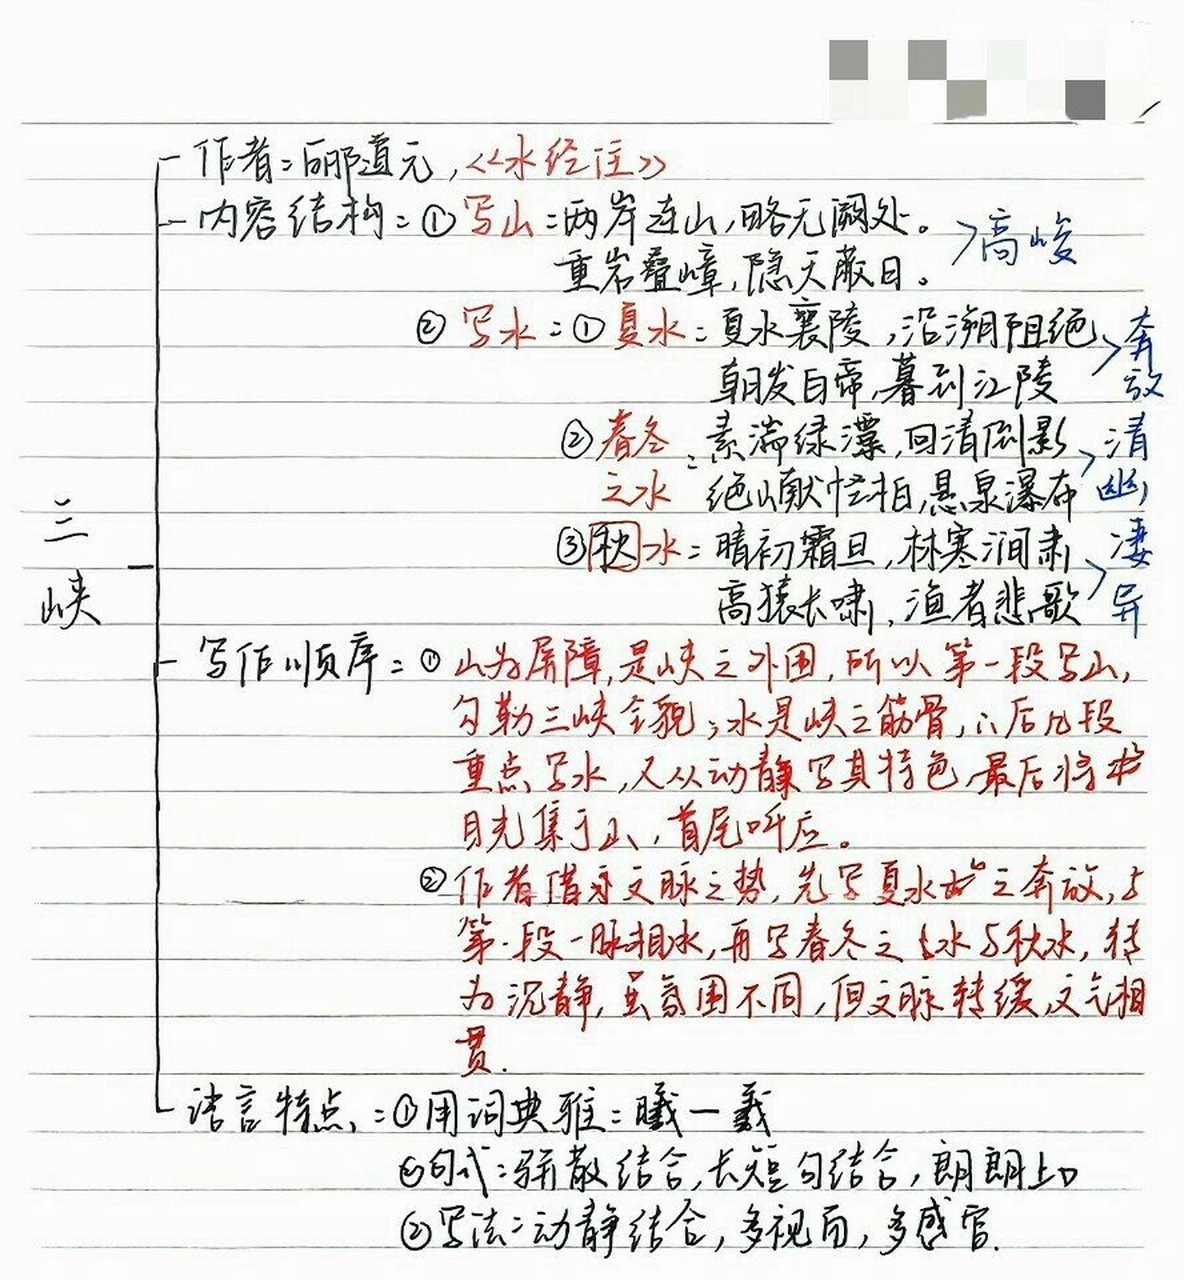 作者:郦道元,《水经注》
内容结构:①写山:两岸连山,略无阙处。
>高峻
重岩叠嶂,隐天蔽日。
②写水:①夏水:夏水襄陵,沿溯阻绝
>奔放
朝发白帝,暮到江陵
②春冬之水:素湍绿潭,回清倒影
>清幽
绝巘怪柏,悬泉瀑布
③秋水:晴初霜旦,林寒涧肃
>凄异
高猿长啸,渔者悲歌
三峡
写作顺序:①山为屏障,是峡之外围,所以第一段写山,
勾勒三峡全貌;水是峡之筋骨,∴后几段
重点写水,又从动静写其特色,最后将
目光集于山,首尾呼应。
②作者借文脉之势,先写夏水之奔放,与
第一段一脉相承,再写春冬之水与秋水,转
为沉静,虽氛围不同,但文脉转缓,文气相
贯.
语言特点:①用词典雅:曦—羲
②句式:骈散结合,长短句结合,朗朗上口
②写法:动静结合,多视角,多感官.